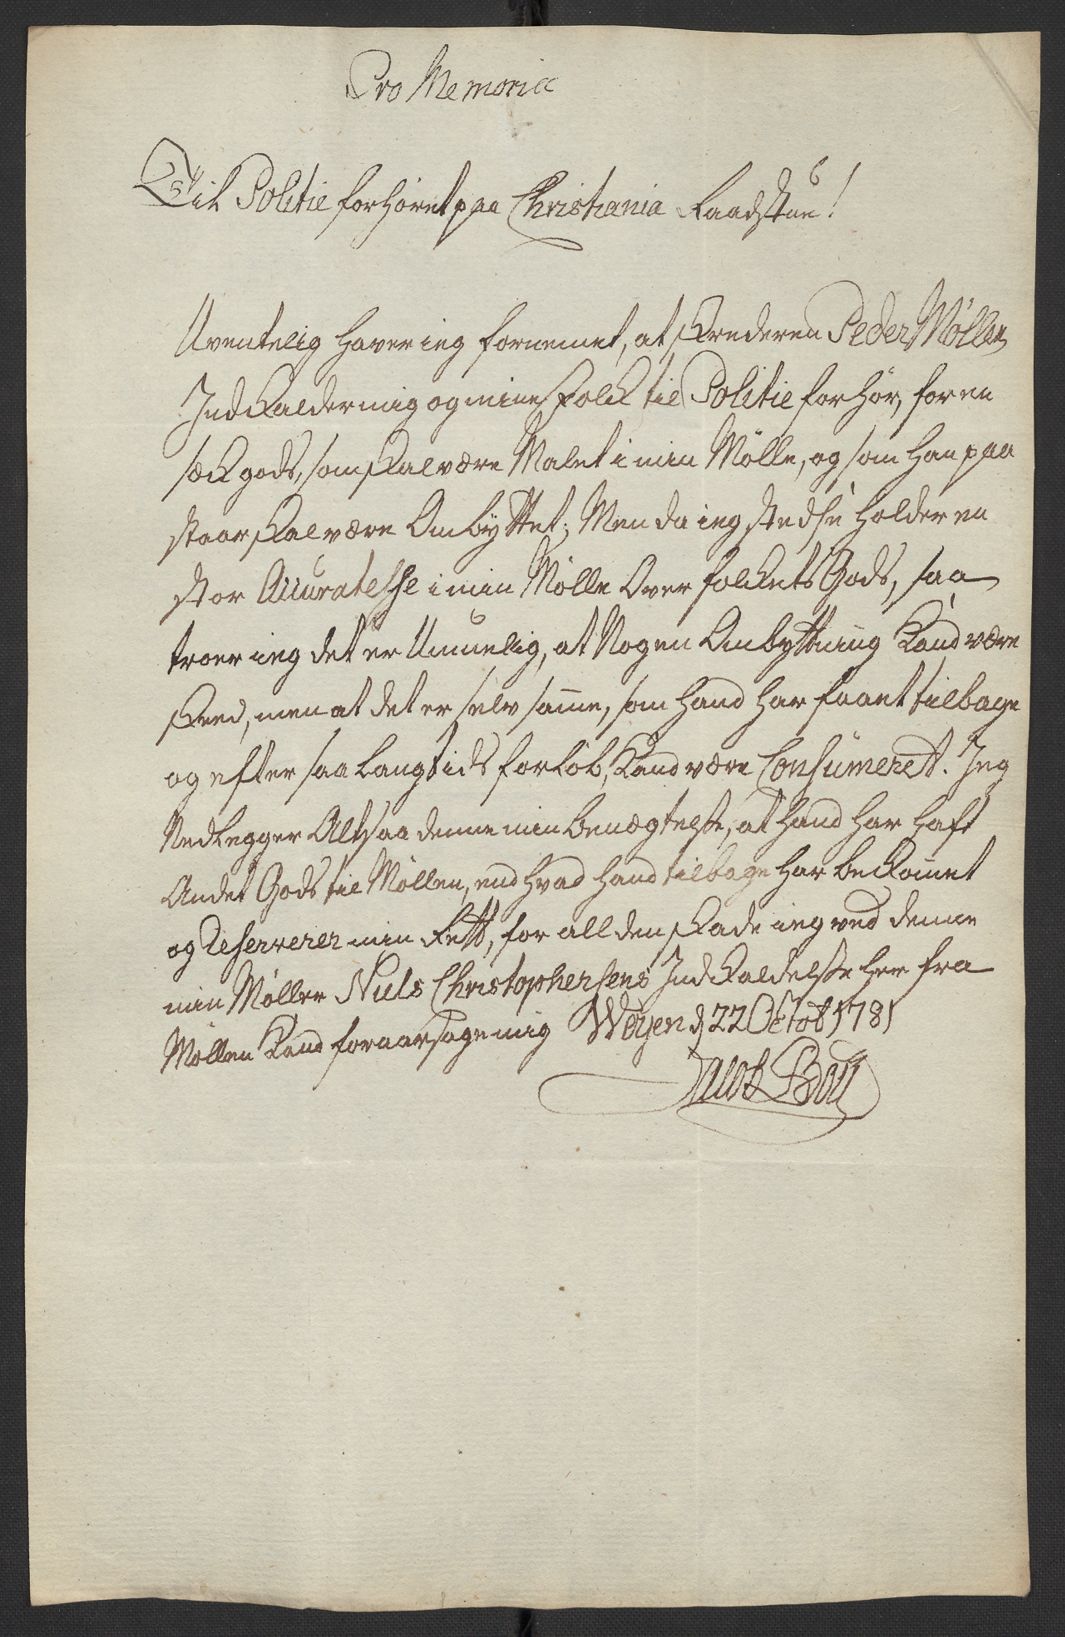 Pro Memoria
Til Politie forhøret paa Christiania Raadstue!
Uventelig haver ieg fornemmet, at Skrederen Peder Møller
Indkalder mig og mine Folck til Politie forhør, for en
sæk gods, som skal være Malet i min Mølle, og som han paa
staar skal være Ombyttet; Men da ieg stedse holder en
stor Accuratesse i min Mølle Over folckets Gods, saa
troer ieg det er Umuelig, at Nogen Ombyttning Kand være
skeed, men at det er selv samme, som hand har faaet tilbage
og efter saa Lang tids forløb, Kand være Consumeret. Jeg
Nedlegger Altsaa denne min Benægtelse, at hand har haft
Andet Gods til Møllen, end hvad hand tilbage har beckommet
og Reserverer min Rett, for all den skade ieg ved denne
min Møller Niels Christophersens Indkaldelse her fra
Møllen Kand foraarsage mig Wøyen d 22 Octob 1781
Jacob Boll